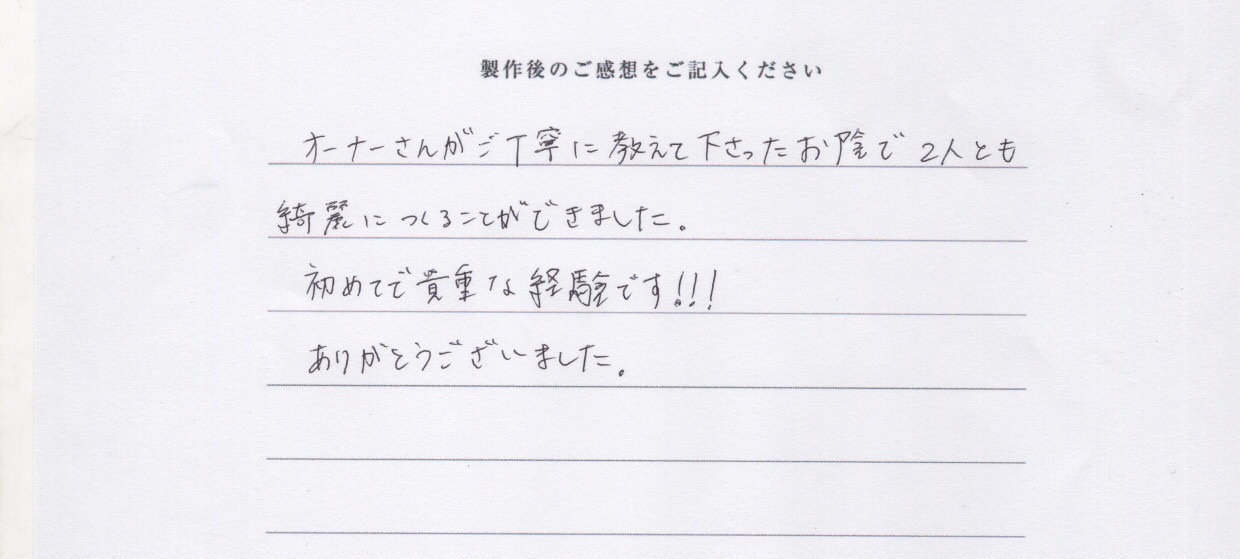 製作後のご感想をご記入ください
オーナーさんがご丁寧に教えて下さったお陰で2人とも
綺麗につくることができました。
初めてで貴重な経験です!!!
ありがとうございました。